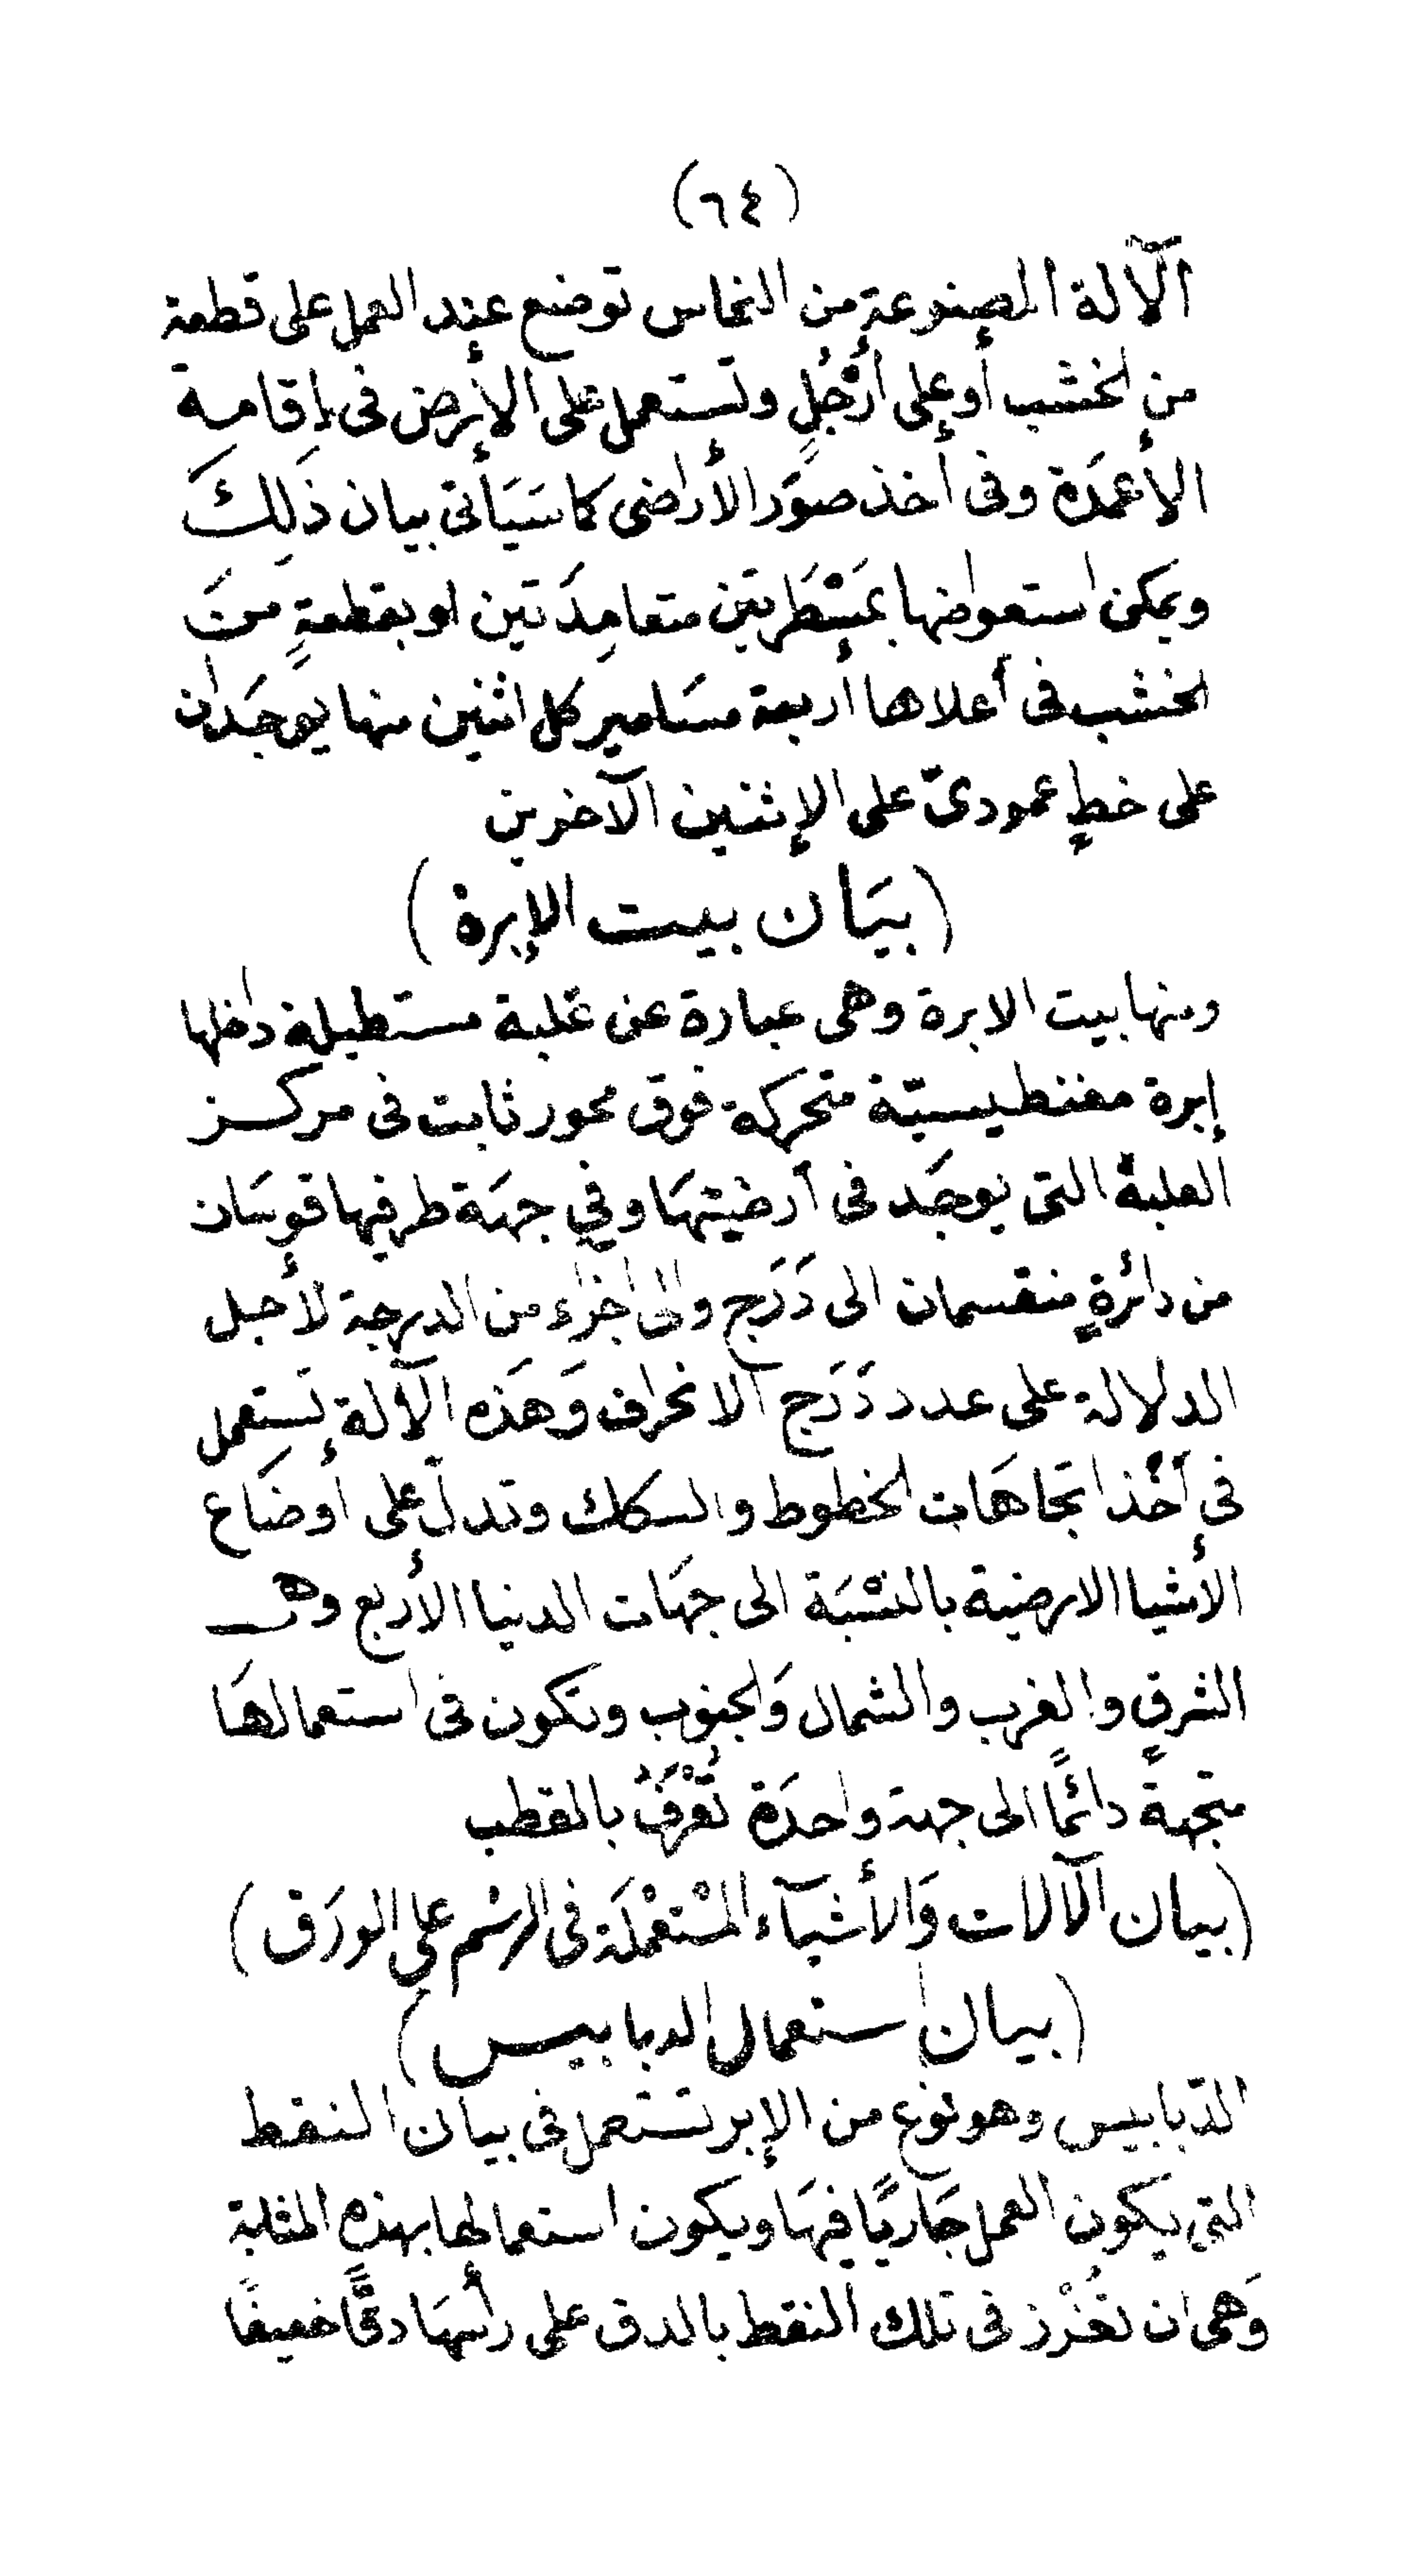 (٦٤)
الآلة المصنوعة من النحاس توضع عند العمل على قطعة
من الخشب أو على أَرْجُلٍ وتستعمل على الأرض فى إقامة
الأعمَدة وفى أخذ صوَر الأراضى كما سَيَأتى بيان ذَلِكَ
ويمكن استعواضها بمَسْطَرتين متعامِدَتين او بقطعةٍ منَ
الخشب فى أعلاها أربعة مسَامير كل اثنين منها يوجَدان
على خطٍ عمودىّ على الإثنين الآخرين
(بيَان بيت الإبرة)
ومنها بيت الابرة وهى عبارة عن عُلبة مستطيلة داخلها
إبرة مغنطيسيّة متحركة فوق محور ثابت فى مركز
العلبة التى يوجَد فى أرضيتهَا وفى جهَة طرفيها قوسَان
من دائرةٍ منقسمان الى دَرَج والى اجزاء من الدرجة لأجل
الدلالة على عدد دَرَج الانحراف وَهَذه الآلة تَستعمل
فى أَخْذ اتجاهَات الخطوط والسكك وتدلّ على اوضَاع
الأشيا الارضية بالنسْبَة الى جهَات الدنيا الأربع وهى
الشرق والغرب والشمال وَالجنوب وتكون فى استعمالهَا
متجهةً دائمًا الى جهة واحدَة تُعْرَفُ بالقطب
(بيان الآلات وَالأشيآء المسْتعْملَة فى الرسْم على الورَق)
(بيان استعمال الدبابيس)
الدّبابيس وهو نوع من الإبر تستعمل فى بيان النقط
التى يكون العمل جَاريًا فيهَا ويكون استعمالها بهذه المثابة
وَهى ان تغُرْز فى تلك النقط بالدق على رأسهَا دقًّا خفيفًا